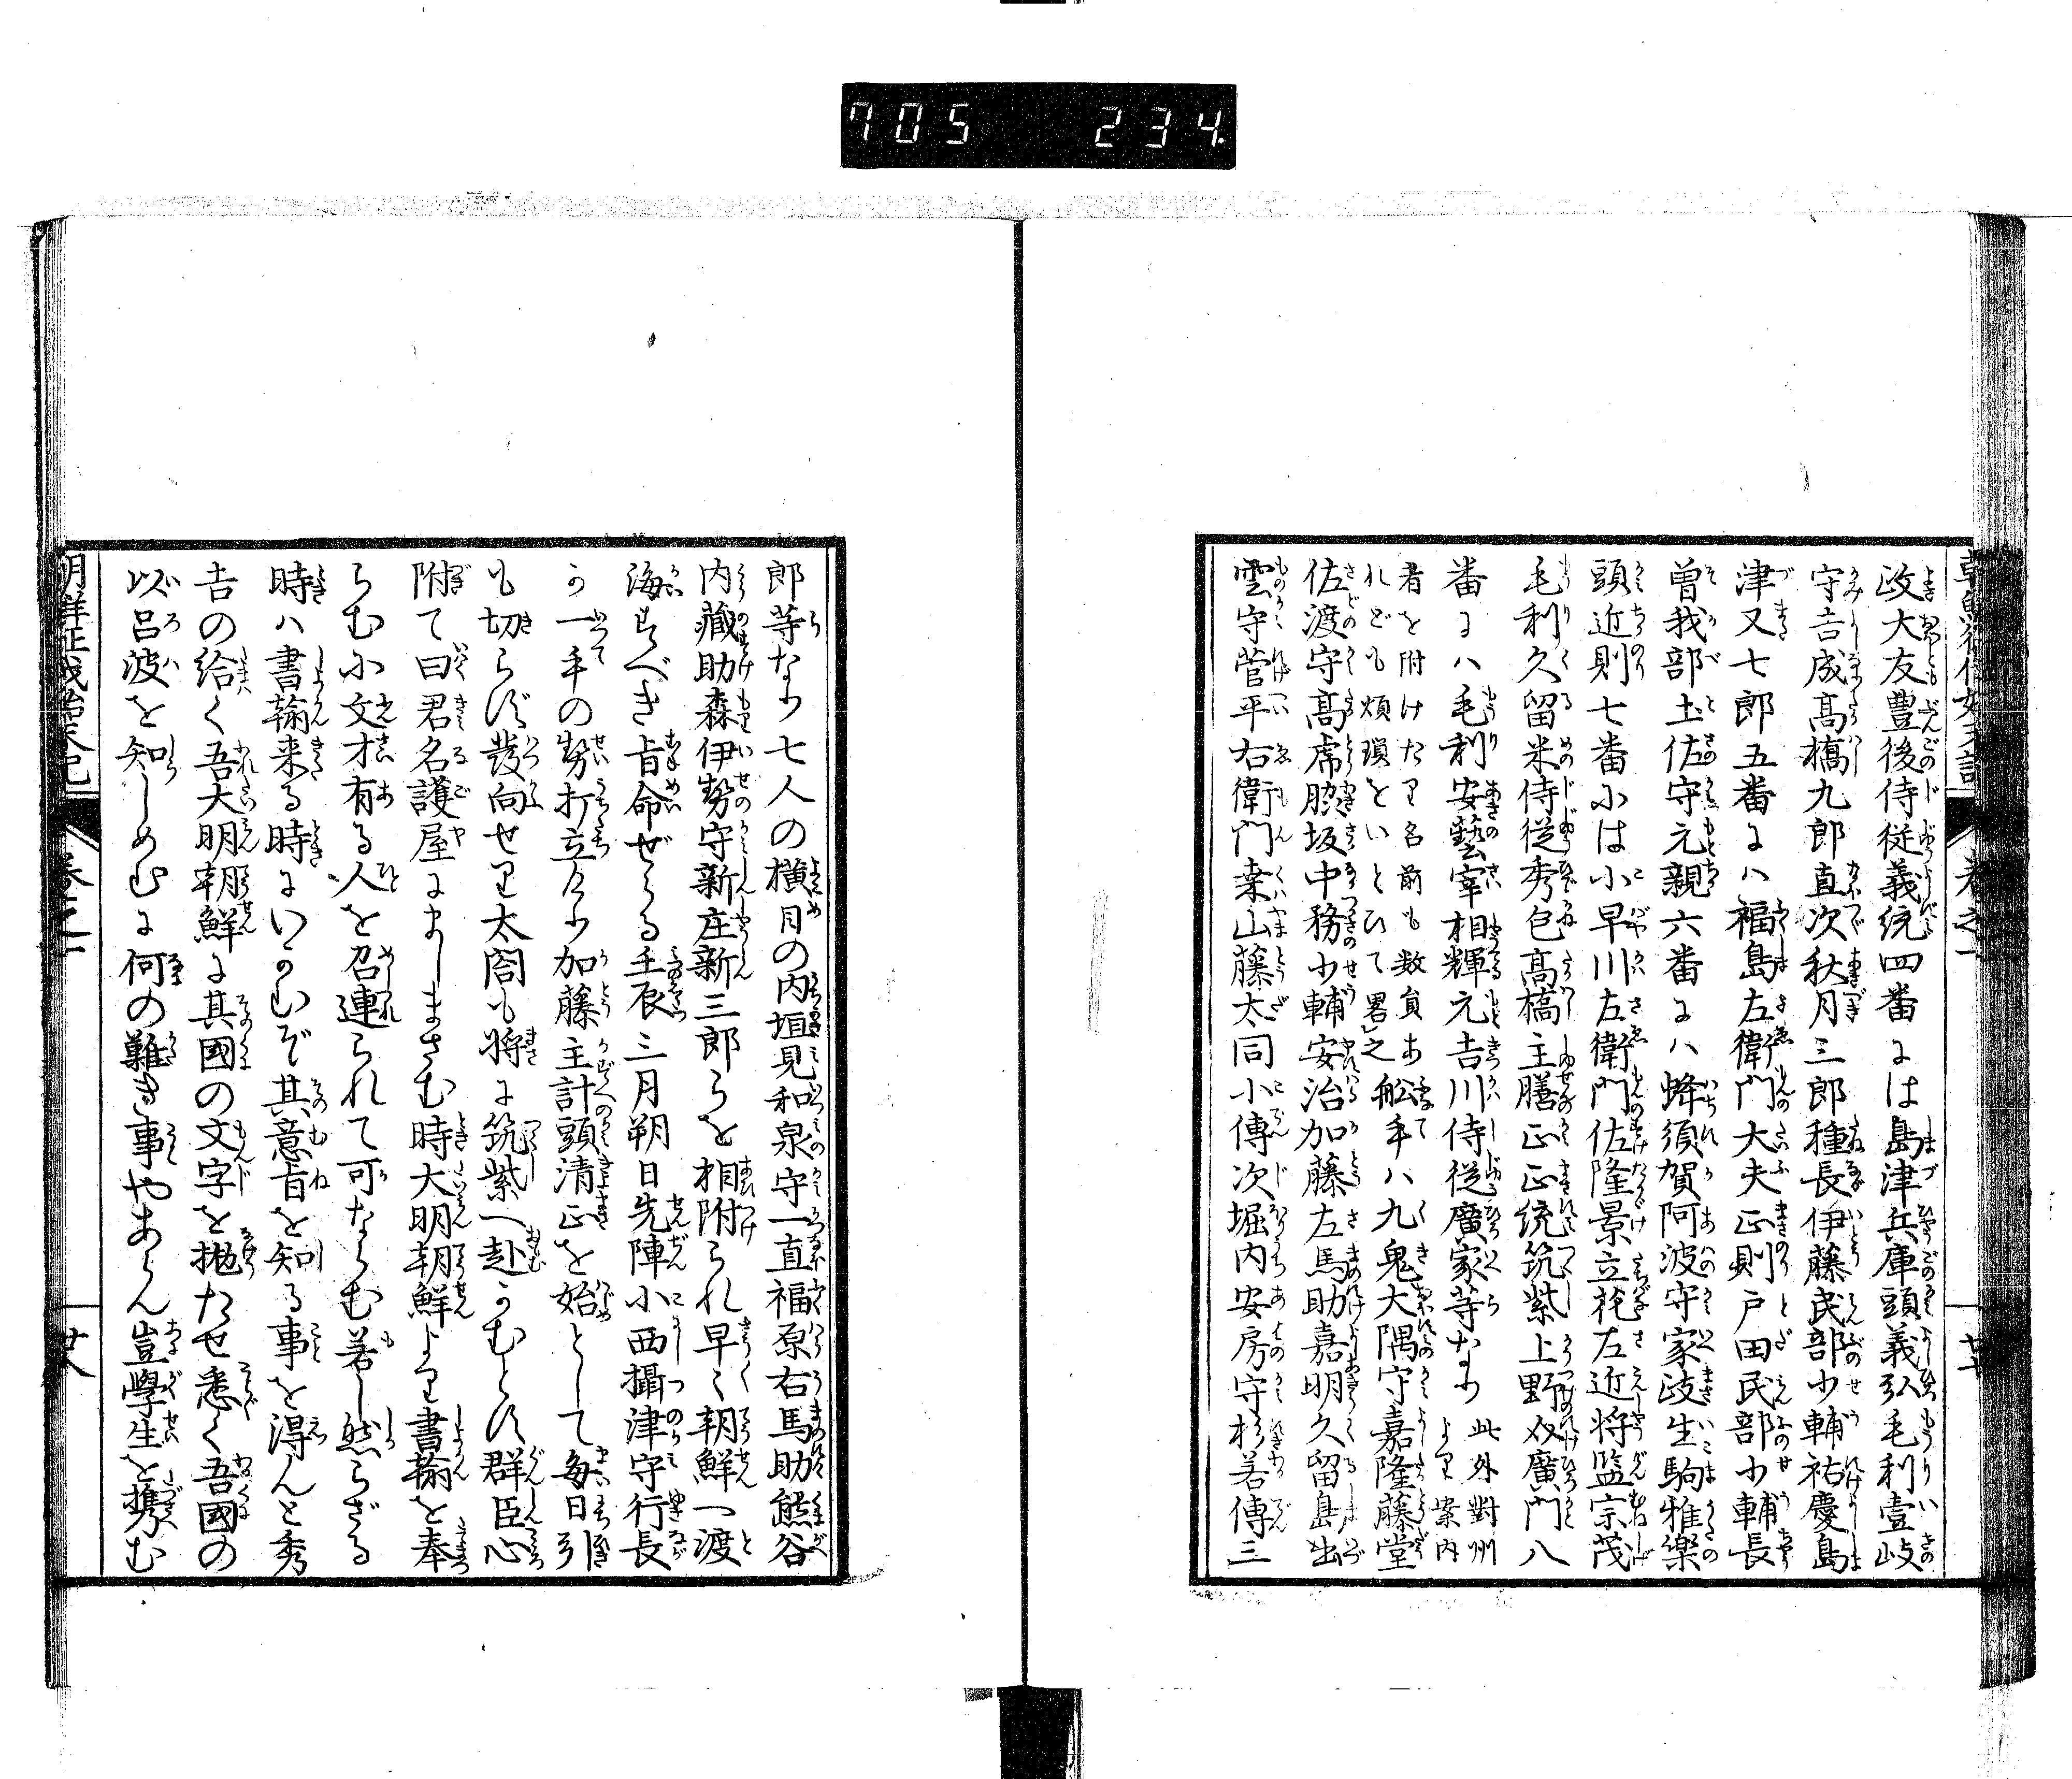 705 234
政大友豊後侍従義統四番には島津兵庫頭義弘毛利壹岐
守吉成髙橋九郎直次秋月三郎種長伊藤民部少輔祐慶島
津又七郎五番にハ福島左衛門大夫正則戸田民部少輔長
曽我部土佐守元親六番にハ蜂須賀阿波守家政生駒雅樂
頭近則七番には小早川左衛門佐隆景立花左近将監宗茂
毛利久留米侍従秀包髙橋主膳正正統筑紫上野介廣門八
番にハ毛利安藝宰相輝元吉川侍従廣家等なり此外對州より案内
者を附けたり名前も数貟あれども煩瑣をいとひて畧之舩手ハ九鬼大隅守嘉隆藤堂
佐渡守髙虎脇坂中務少輔安治加藤左馬助嘉明久留島出
雲守菅平右衛門桒山藤太同小傳次堀内安房守杉若傳三
郎等なり七人の横目の内垣見和泉守一直福原右馬助熊谷
内藏助森伊勢守新庄新三郎らを相附られ早く朝鮮へ渡
海すべき旨命ぜらる壬辰三月朔日先陣小西攝津守行長
が一手の勢打立けり加藤主計頭清正を始として毎日引
も切らず發向せり太閤も将に筑紫へ赴かむとす群臣心
附て曰君名護屋にましまさむ時大明朝鮮より書翰を奉
らむに文才有る人を召連られて可ならむ若し然らざる
時ハ書翰来る時にいかむぞ其意旨を知る事を得んと秀
吉の給く吾大明朝鮮に其國の文字を抛たせ悉く吾國の
以呂波を知しめむに何の難き事やあらん豈學生を携む
卷之一
廿八